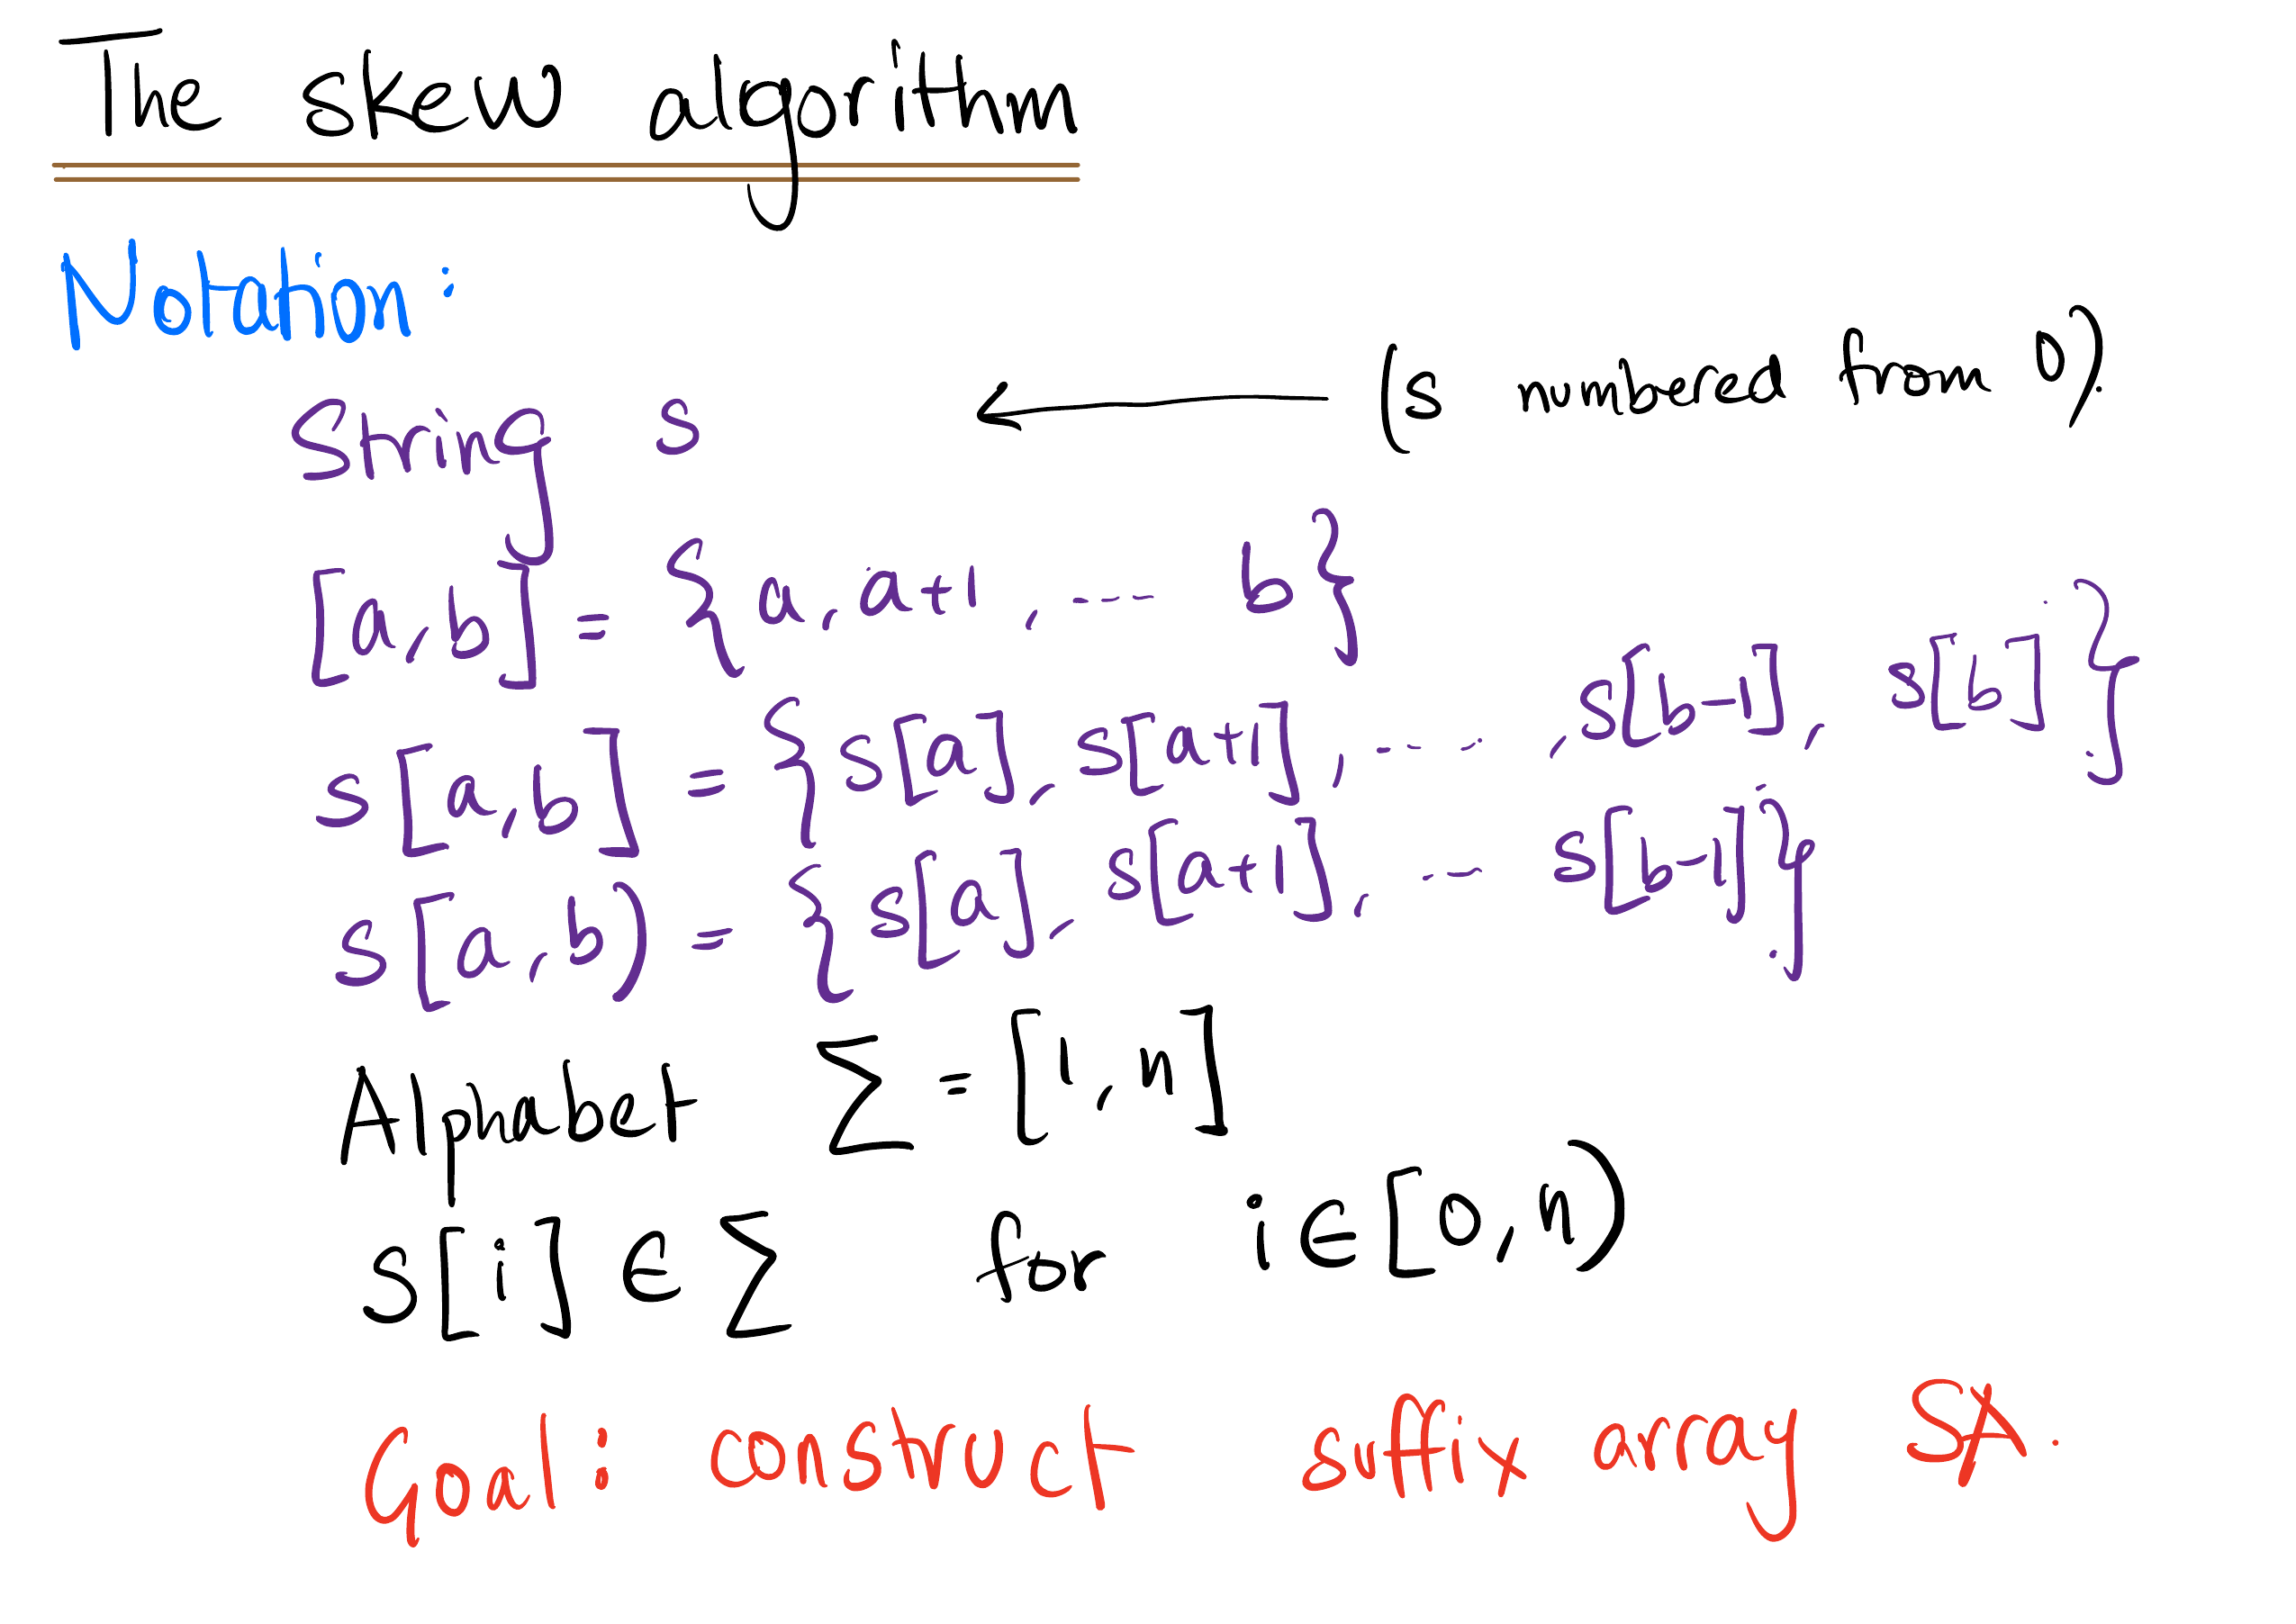 The skew algorithm
Notation:
String s ← (s numbered from 0).
[a,b] = {a, a+1, ---- b}
s[a,b] = {s[a], s[a+1], ---- , s[b-1], s[b]}
s[a,b) = {s[a], s[a+1], --- s[b-1]}
Alphabet Σ = [1,n]
s[i] ∈ Σ for i ∈ [0,n)
Goal: construct suffix array SA.